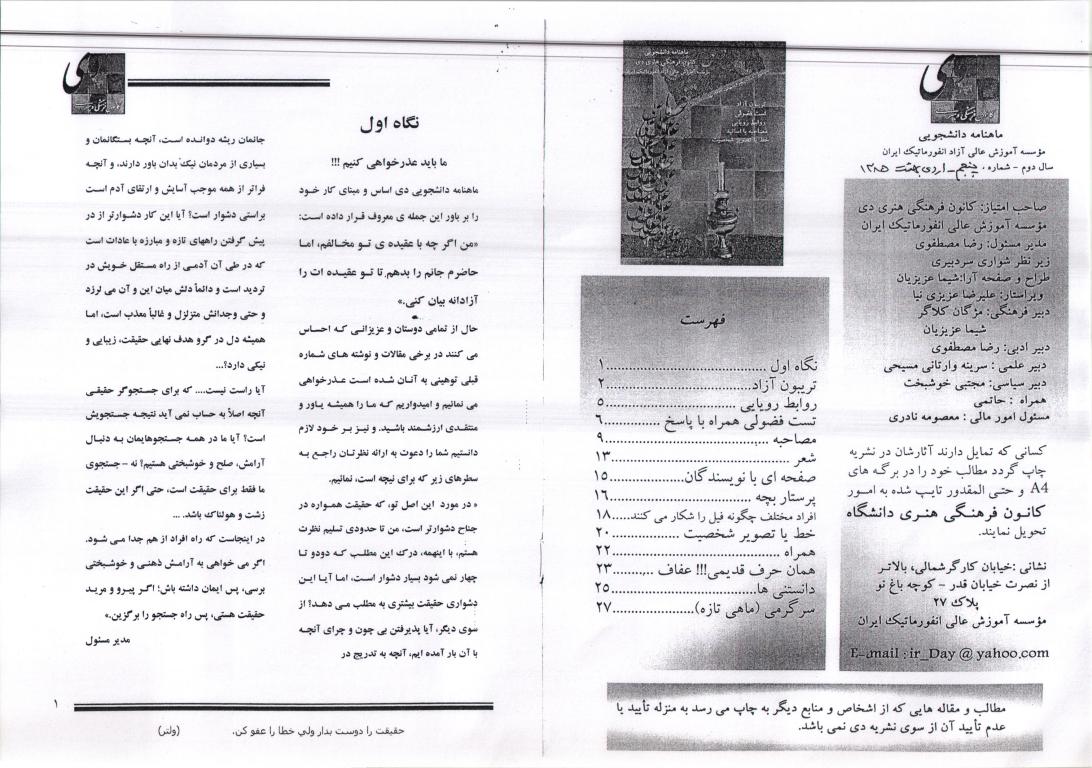 ماهنامه دانشجویی
مؤسسه آموزش عالی آزاد انفورماتیک ایران
سال دوم - شماره پنجم - اردیبهشت ۱۳۸۵
صاحب امتیاز: کانون فرهنگی هنری دی
مؤسسه آموزش عالی انفورماتیک ایران
مدیر مسئول: رضا مصطفوی
زیر نظر شواری سردبیری
طراح و صفحه آرا:شیما عزیزیان
ویراستار: علیرضا عزیزی نیا
دبیر فرهنگی: مژگان کلاگر
شیما عزیزیان
دبیر ادبی: رضا مصطفوی
دبیر علمی : سرینه وارتانی مسیحی
دبیر سیاسی: مجتبی خوشبخت
همراه : حاتمی
مسئول امور مالی : معصومه نادری
کسانی که تمایل دارند آثارشان در نشریه
چاپ گردد مطالب خود را در برگه های
A4 و حتی المقدور تایپ شده به امور
کانون فرهنگی هنری دانشگاه
تحویل نمایند.
نشانی :خیابان کارگرشمالی، بالاتر
از نصرت خیابان قدر - کوچه باغ نو
پلاک ۲۷
مؤسسه آموزش عالی انفورماتیک ایران
E-mail : ir_Day @ yahoo.com
ماهنامه دانشجویی
کانون فرهنگی هنری دی
تریبون آزاد
تست فضولی
روابط رویایی
مصاحبه با اساتید
خط یا تصویر شخصیت
فهرست
نگاه اول ..........................................۱
تریبون آزاد.......................................۲
روابط رویایی ...................................۵
تست فضولی همراه با پاسخ ..............۶
مصاحبه ..........................................۹
شعر ..............................................۱۳
صفحه ای با نویسندگان...................۱۵
پرستار بچه ....................................۱۶
افراد مختلف چگونه فیل را شکار می کنند.....۱۸
خط یا تصویر شخصیت ..................۲۰
همراه ............................................۲۲
همان حرف قدیمی!!! عفاف ..........۲۳
دانستنی ها....................................۲۵
سرگرمی (ماهی تازه)......................۲۷
مطالب و مقاله هایی که از اشخاص و منابع دیگر به چاپ می رسد به منزله تأیید یا
عدم تأیید آن از سوی نشریه دی نمی باشد.
نگاه اول
ما باید عذرخواهی کنیم !!!
ماهنامه دانشجویی دی اساس و مبنای کار خود
را بر باور این جمله ی معروف قرار داده است:
«من اگر چه با عقیده ی تو مخالفم، اما
حاضرم جانم را بدهم تا تو عقیده ات را
آزادانه بیان کنی.»
حال از تمامی دوستان و عزیزانی که احساس
می کنند در برخی مقالات و نوشته های شماره
قبلی توهینی به آنان شده است عذرخواهی
می نمائیم و امیدواریم که ما را همیشه یاور و
منتقدی ارزشمند باشید. و نیز بر خود لازم
دانستیم شما را دعوت به ارائه نظرتان راجع به
سطرهای زیر که برای نیچه است، نمائیم.
« در مورد این اصل تو، که حقیقت همواره در
جناح دشوارتر است، من تا حدودی تسلیم نظرت
هستم، با اینهمه، درک این مطلب که دودو تا
چهار نمی شود بسیار دشوار است، اما آیا این
دشواری حقیقت بیشتری به مطلب می دهد؟ از
سوی دیگر، آیا پذیرفتن بی چون و چرای آنچه
با آن بار آمده ایم، آنچه به تدریج در
جانمان ریشه دوانده است، آنچه بستگانمان و
بسیاری از مردمان نیک بدان باور دارند، و آنچه
فراتر از همه موجب آسایش و ارتقای آدم است
براستی دشوار است؟ آیا این کار دشوارتر از در
پیش گرفتن راههای تازه و مبارزه با عادات است
که در طی آن آدمی از راه مستقل خویش در
تردید است و دائماً دلش میان این و آن می لرزد
و حتی وجدانش متزلزل و غالباً معذب است، اما
همیشه دل در گرو هدف نهایی حقیقت، زیبایی و
نیکی دارد؟...
آیا راست نیست.... که برای جستجوگر حقیقی
آنچه اصلاً به حساب نمی آید نتیجه جستجویش
است؟ آیا ما در همه جستجوهایمان به دنبال
آرامش، صلح و خوشبختی هستیم؟ نه – جستجوی
ما فقط برای حقیقت است، حتی اگر این حقیقت
زشت و هولناک باشد. ...
در اینجاست که راه افراد از هم جدا می شود.
اگر می خواهی به آرامش ذهنی و خوشبختی
برسی، پس ایمان داشته باش؛ اگر پیرو و مرید
حقیقت هستی، پس راه جستجو را برگزین.»
مدیر مسئول
۱
حقیقت را دوست بدار ولی خطا را عفو کن. (ولتر)